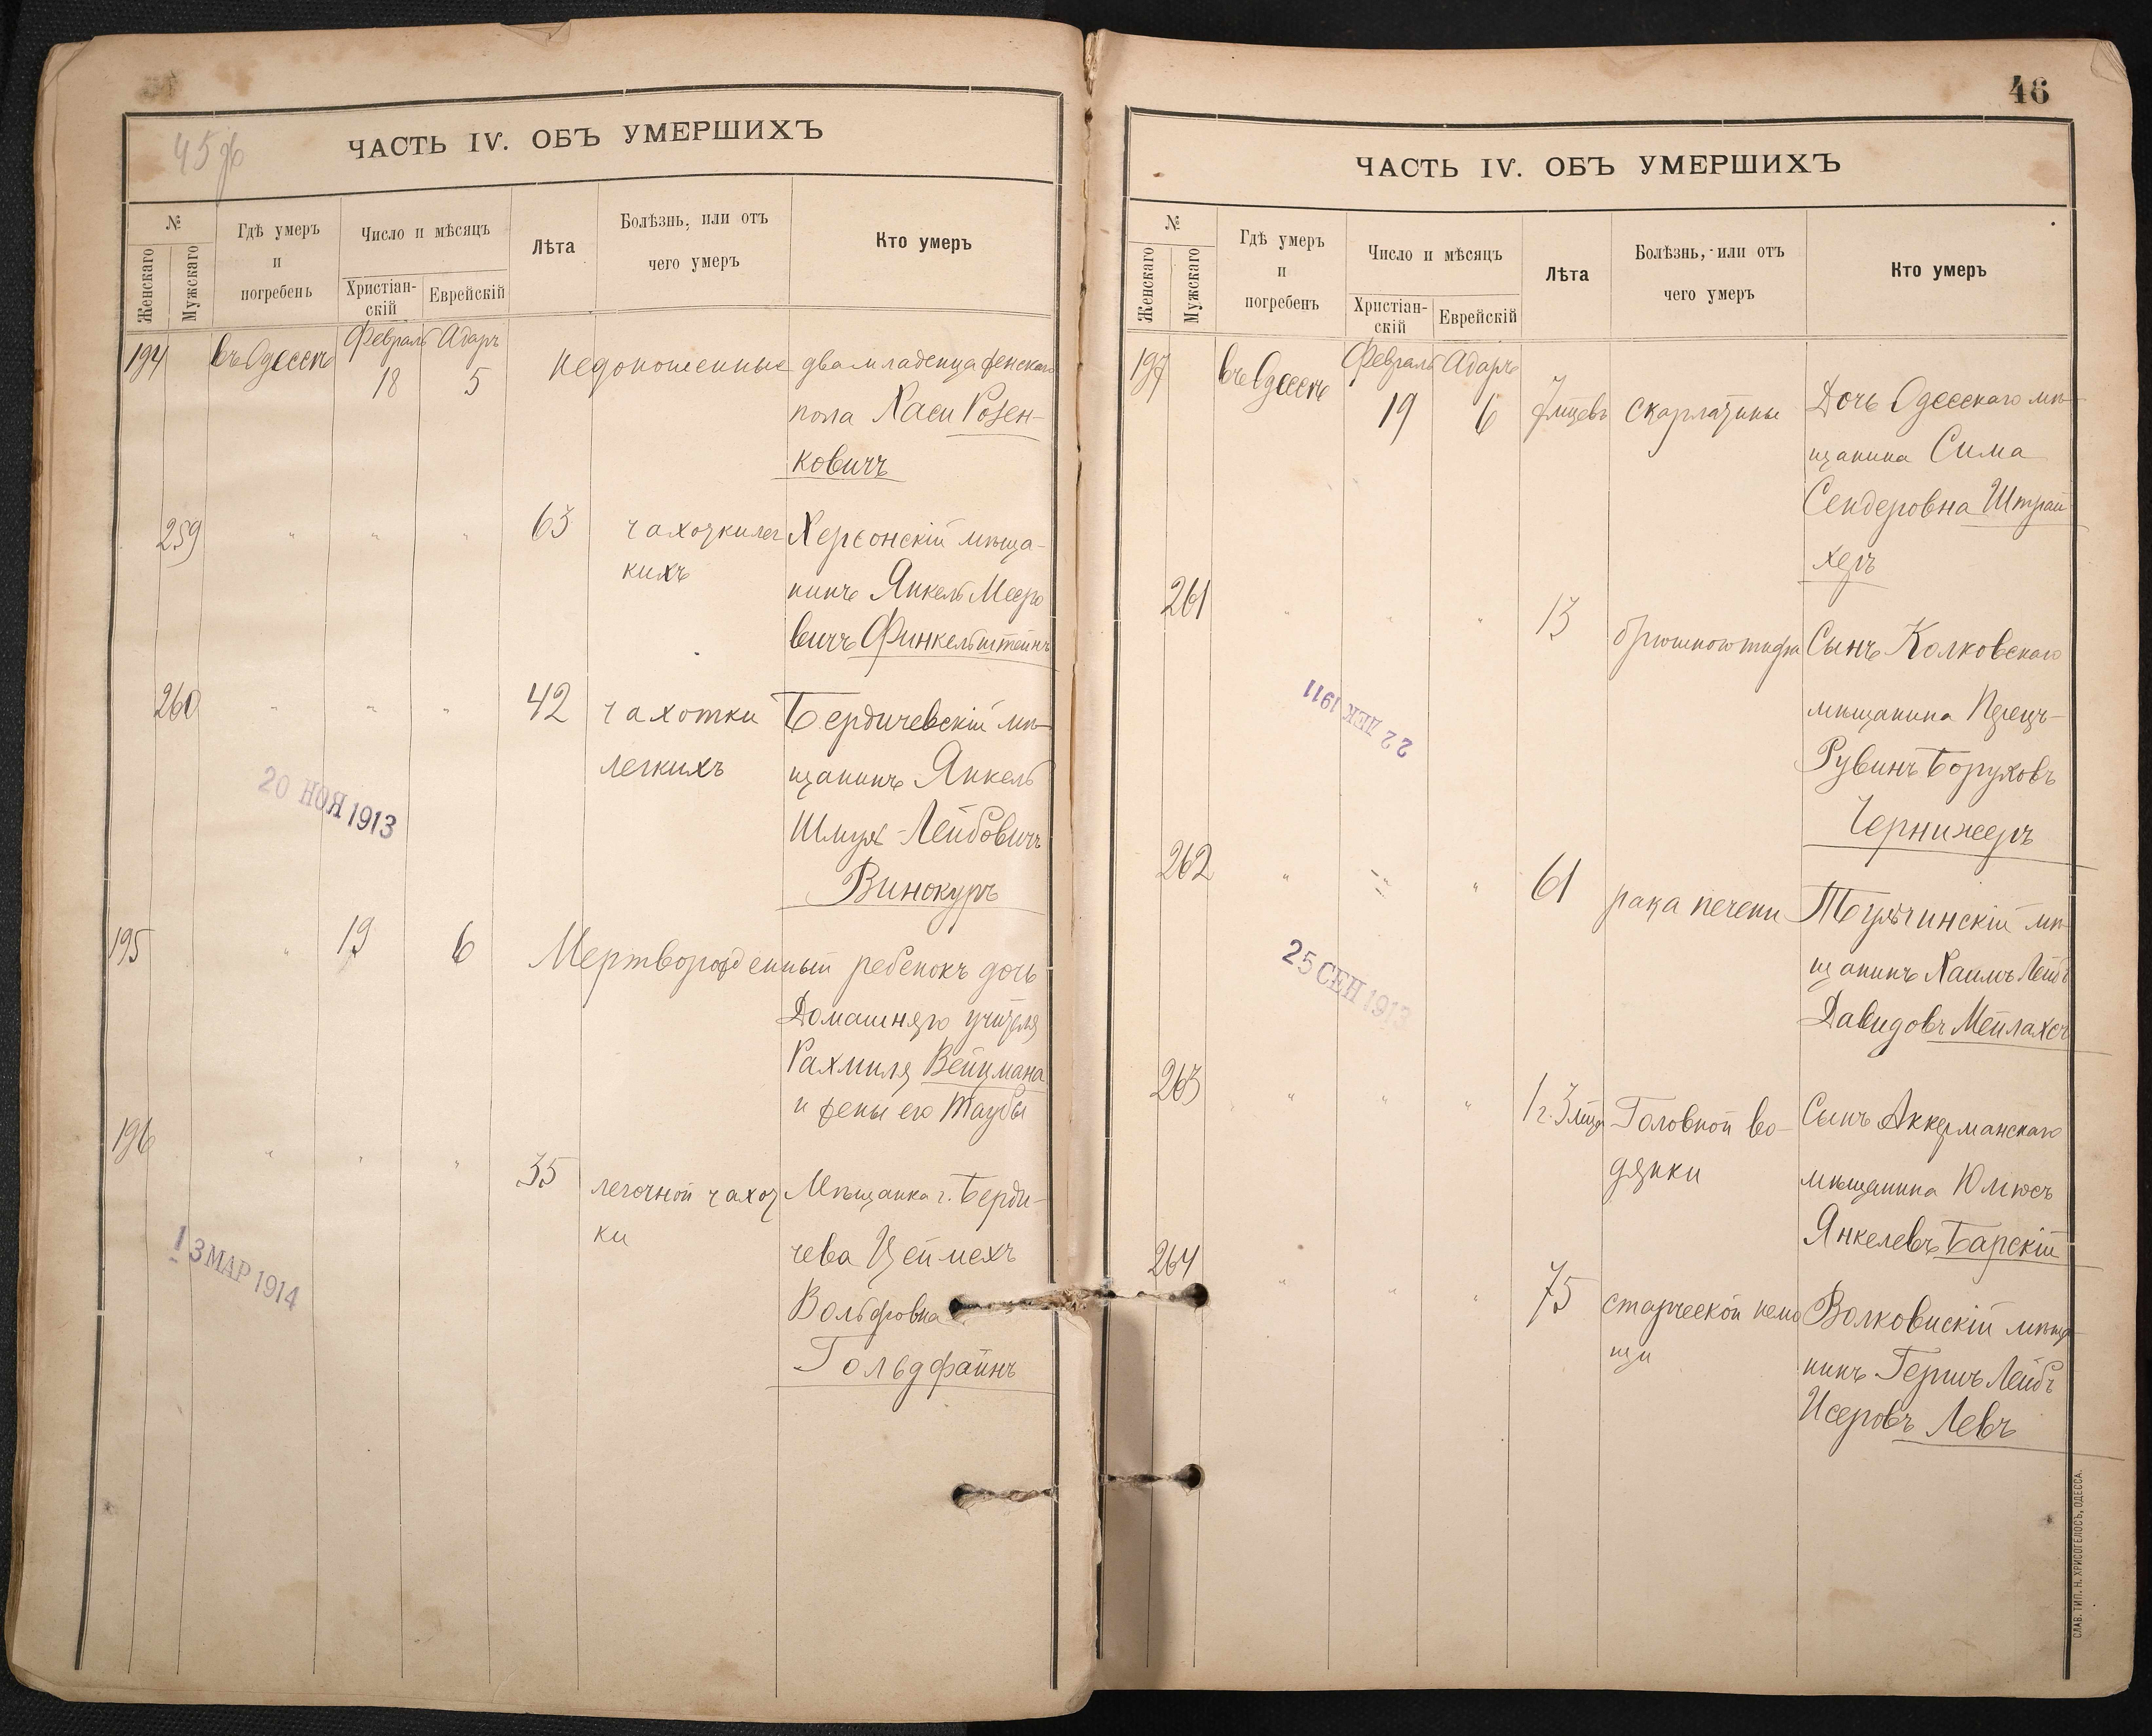 45 об
ЧАСТЬ IV. ОБЪ УМЕРШИХЪ
№
Женскаго
Мужскаго
Гдѣ умеръ
и
погребенъ
Число и мѣсяцъ
Христіан-
скій
Еврейскій
Лѣта
Болѣзнь, или отъ
чего умеръ
Кто умеръ
194 въ Одессѣ Февраль Адаръ
18 5 недоношенные два младенца женскаго
пола Хаси Розен-
ковичъ
259 " " " 63 чахотки лег Херсонскій мѣща-
кихъ
нинъ Янкель Мееро
вичъ Финкельштейнъ
260 " " " 42 чахотки Бердичевскій мѣ-
легкихъ щанинъ Янкель
Шмуль-Лейбовичъ
Винокуръ
20 НОЯ 1913
195 " 19 6 Мертворожденный ребенокъ дочь
Домашняго учителя
Рахмиля Вейцмана
и жены его Таубы
196 " " " 35 легочной чахот Мѣщанка г. Берди-
ки
чева Цеймехъ
Вольфовна
Гольдфайнъ
13 МАР 1914
46
ЧАСТЬ IV. ОБЪ УМЕРШИХЪ
№
Женскаго
Мужскаго
Гдѣ умеръ
и
погребенъ
Число и мѣсяцъ
Христіан-
скій
Еврейскій
Лѣта
Болѣзнь, или отъ
чего умеръ
Кто умеръ
197 въ Одессѣ Февраль Адаръ
19 6 7 мѣцевъ Скарлатины Дочь Одесскаго мѣ-
щанина Сима
Сендеровна Штрай
херъ
261 " " " 13 брюшного тифа Сынъ Колковскаго
мѣщанина Перецъ-
Рувинъ Боруховъ
Чернижеръ
22 ДЕК 1911
262 " " " 61 рака печени Тульчинскій мѣ-
щанинъ Хаимъ Лейбъ
Давидовъ Мейлахсъ
25 СЕН 1913
263 " " " 1 г. 3 мѣц Головной во- Сынъ Аккерманскаго
дянки мѣщанина Юлюсъ
Янкелевъ Барскій
264 " " " 75 старческой немо Волковискій мѣща-
щи
нинъ Гершъ Лейбъ
Исеровъ Левъ
СЛАВ. ТИП. Н. ХРИСОГЕЛОСЪ, ОДЕССА.